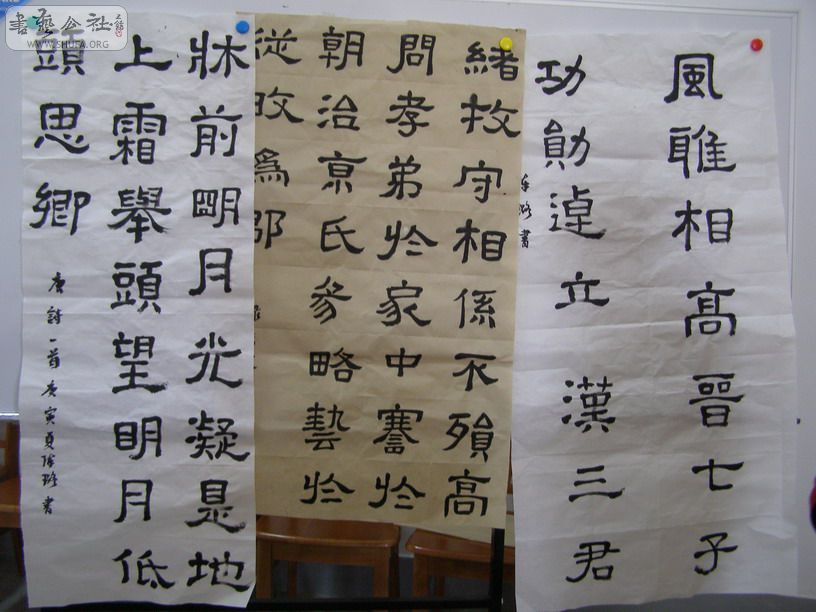 書藝公社
WWW.SHUFA.ORG
風雅相高晉七子
功勛逴立漢三君
緒牧守相係不殞高
問孝弟於家中謇於
朝治京氏參略藝於
從畋爲郎
牀前明月光凝是地
上霜舉頭望明月低
頭思鄉
唐詩一首庚寅夏璐書